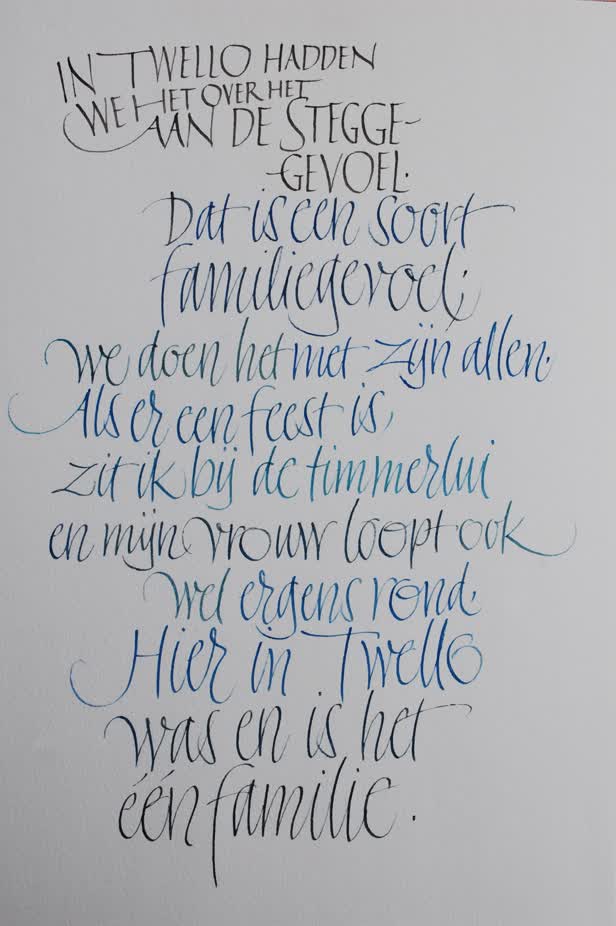 IN TWELLO HADDEN
WE HET OVER HET
AAN DE STEGGE-
-GEVOEL.
Dat is een soort
familiegevoel;
we doen het met zijn allen.
Als er een feest is,
zit ik bij de timmerlui
en mijn vrouw loopt ook
wel ergens rond.
Hier in Twello
was en is het
één familie.